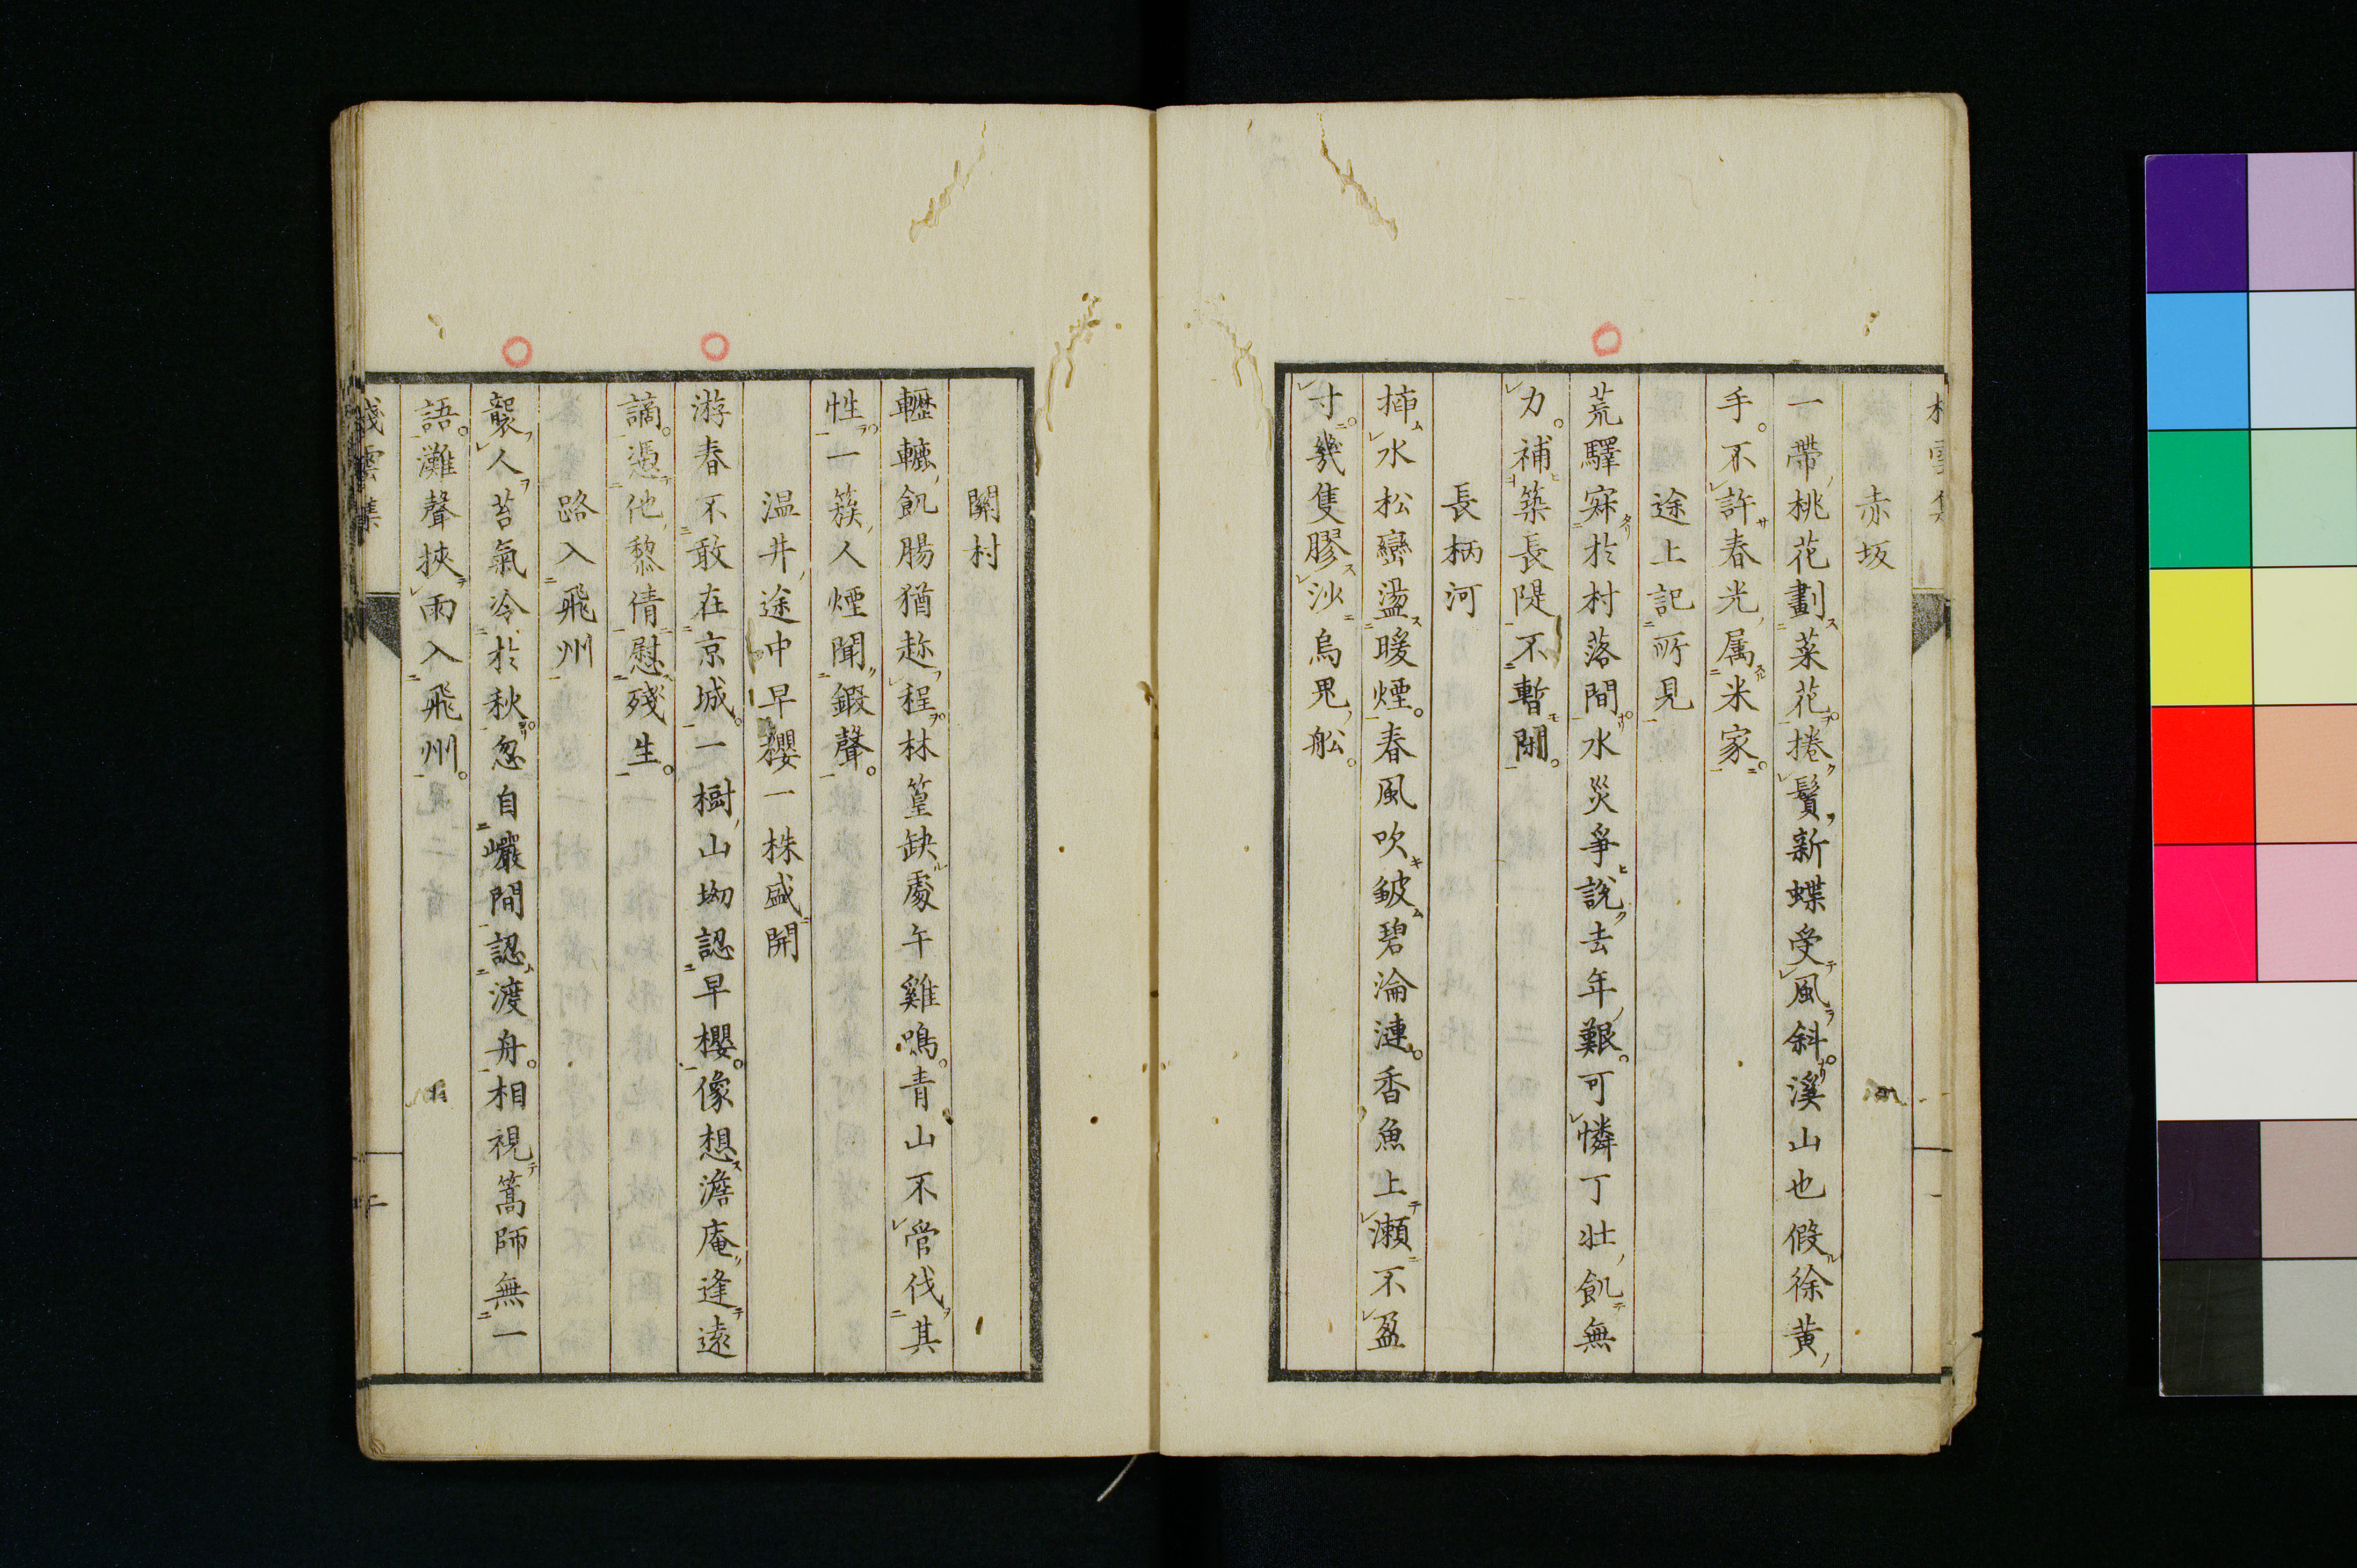 赤坂
一帶桃花劃菜花捲鬢新蝶受風斜溪山也假徐黄
手不許春光属米家
途上記所見
荒驛寂於村落間水災爭說去年艱可憐丁壯飢無
力補築長隄不暫閑
長柄河
插水松巒盪暖煙春風吹皺碧淪漣香魚上瀬不盈
寸幾隻膠沙烏鬼舩
關村
轣轆飢腸猶趂程林篁缺處午雞鳴青山不管伐其
性一簇人煙聞鍛聲
温井途中早櫻一株盛開
游春不敢在京城一樹山坳認早櫻像想澹庵逢遠
謫憑他黎倩慰殘生
路入飛州
襲人苔氣冷於秋忽自巖間認渡舟相視篙師無一
語灘聲挾雨入飛州